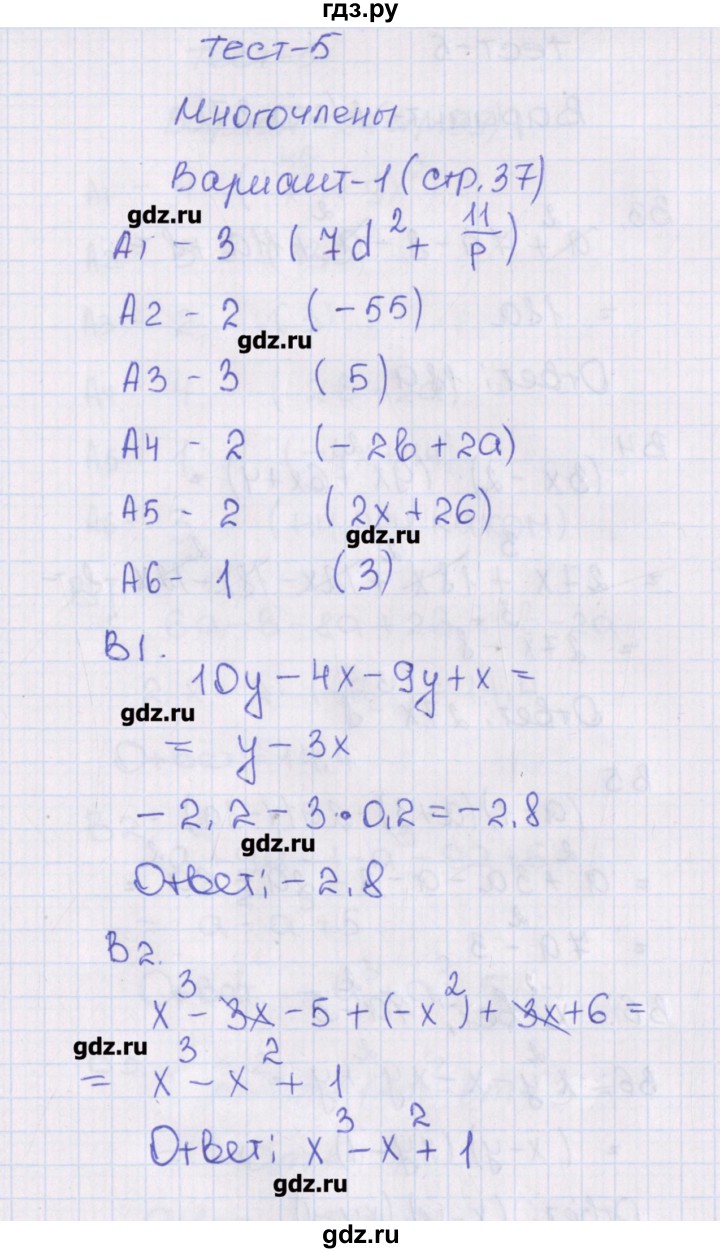 гдз.ру
Тест-5
Многочлены
Вариант-1 (стр. 37)
gdz.ru
А1 - 3 (7d² + 11/p)
А2 - 2 (-55)
gdz.ru
А3 - 3 (5)
А4 - 2 (-2b + 2a)
А5 - 2 (2x + 26)
gdz.ru
А6 - 1 (3)
В1.
10y - 4x - 9y + x =
gdz.ru
= y - 3x
-2,2 - 3 · 0,2 = -2,8
gdz.ru
Ответ: -2,8
В2.
x³ - 3x - 5 + (-x²) + 3x + 6 =
gdz.ru
= x³ - x² + 1
Ответ: x³ - x² + 1
gdz.ru
gdz.ru